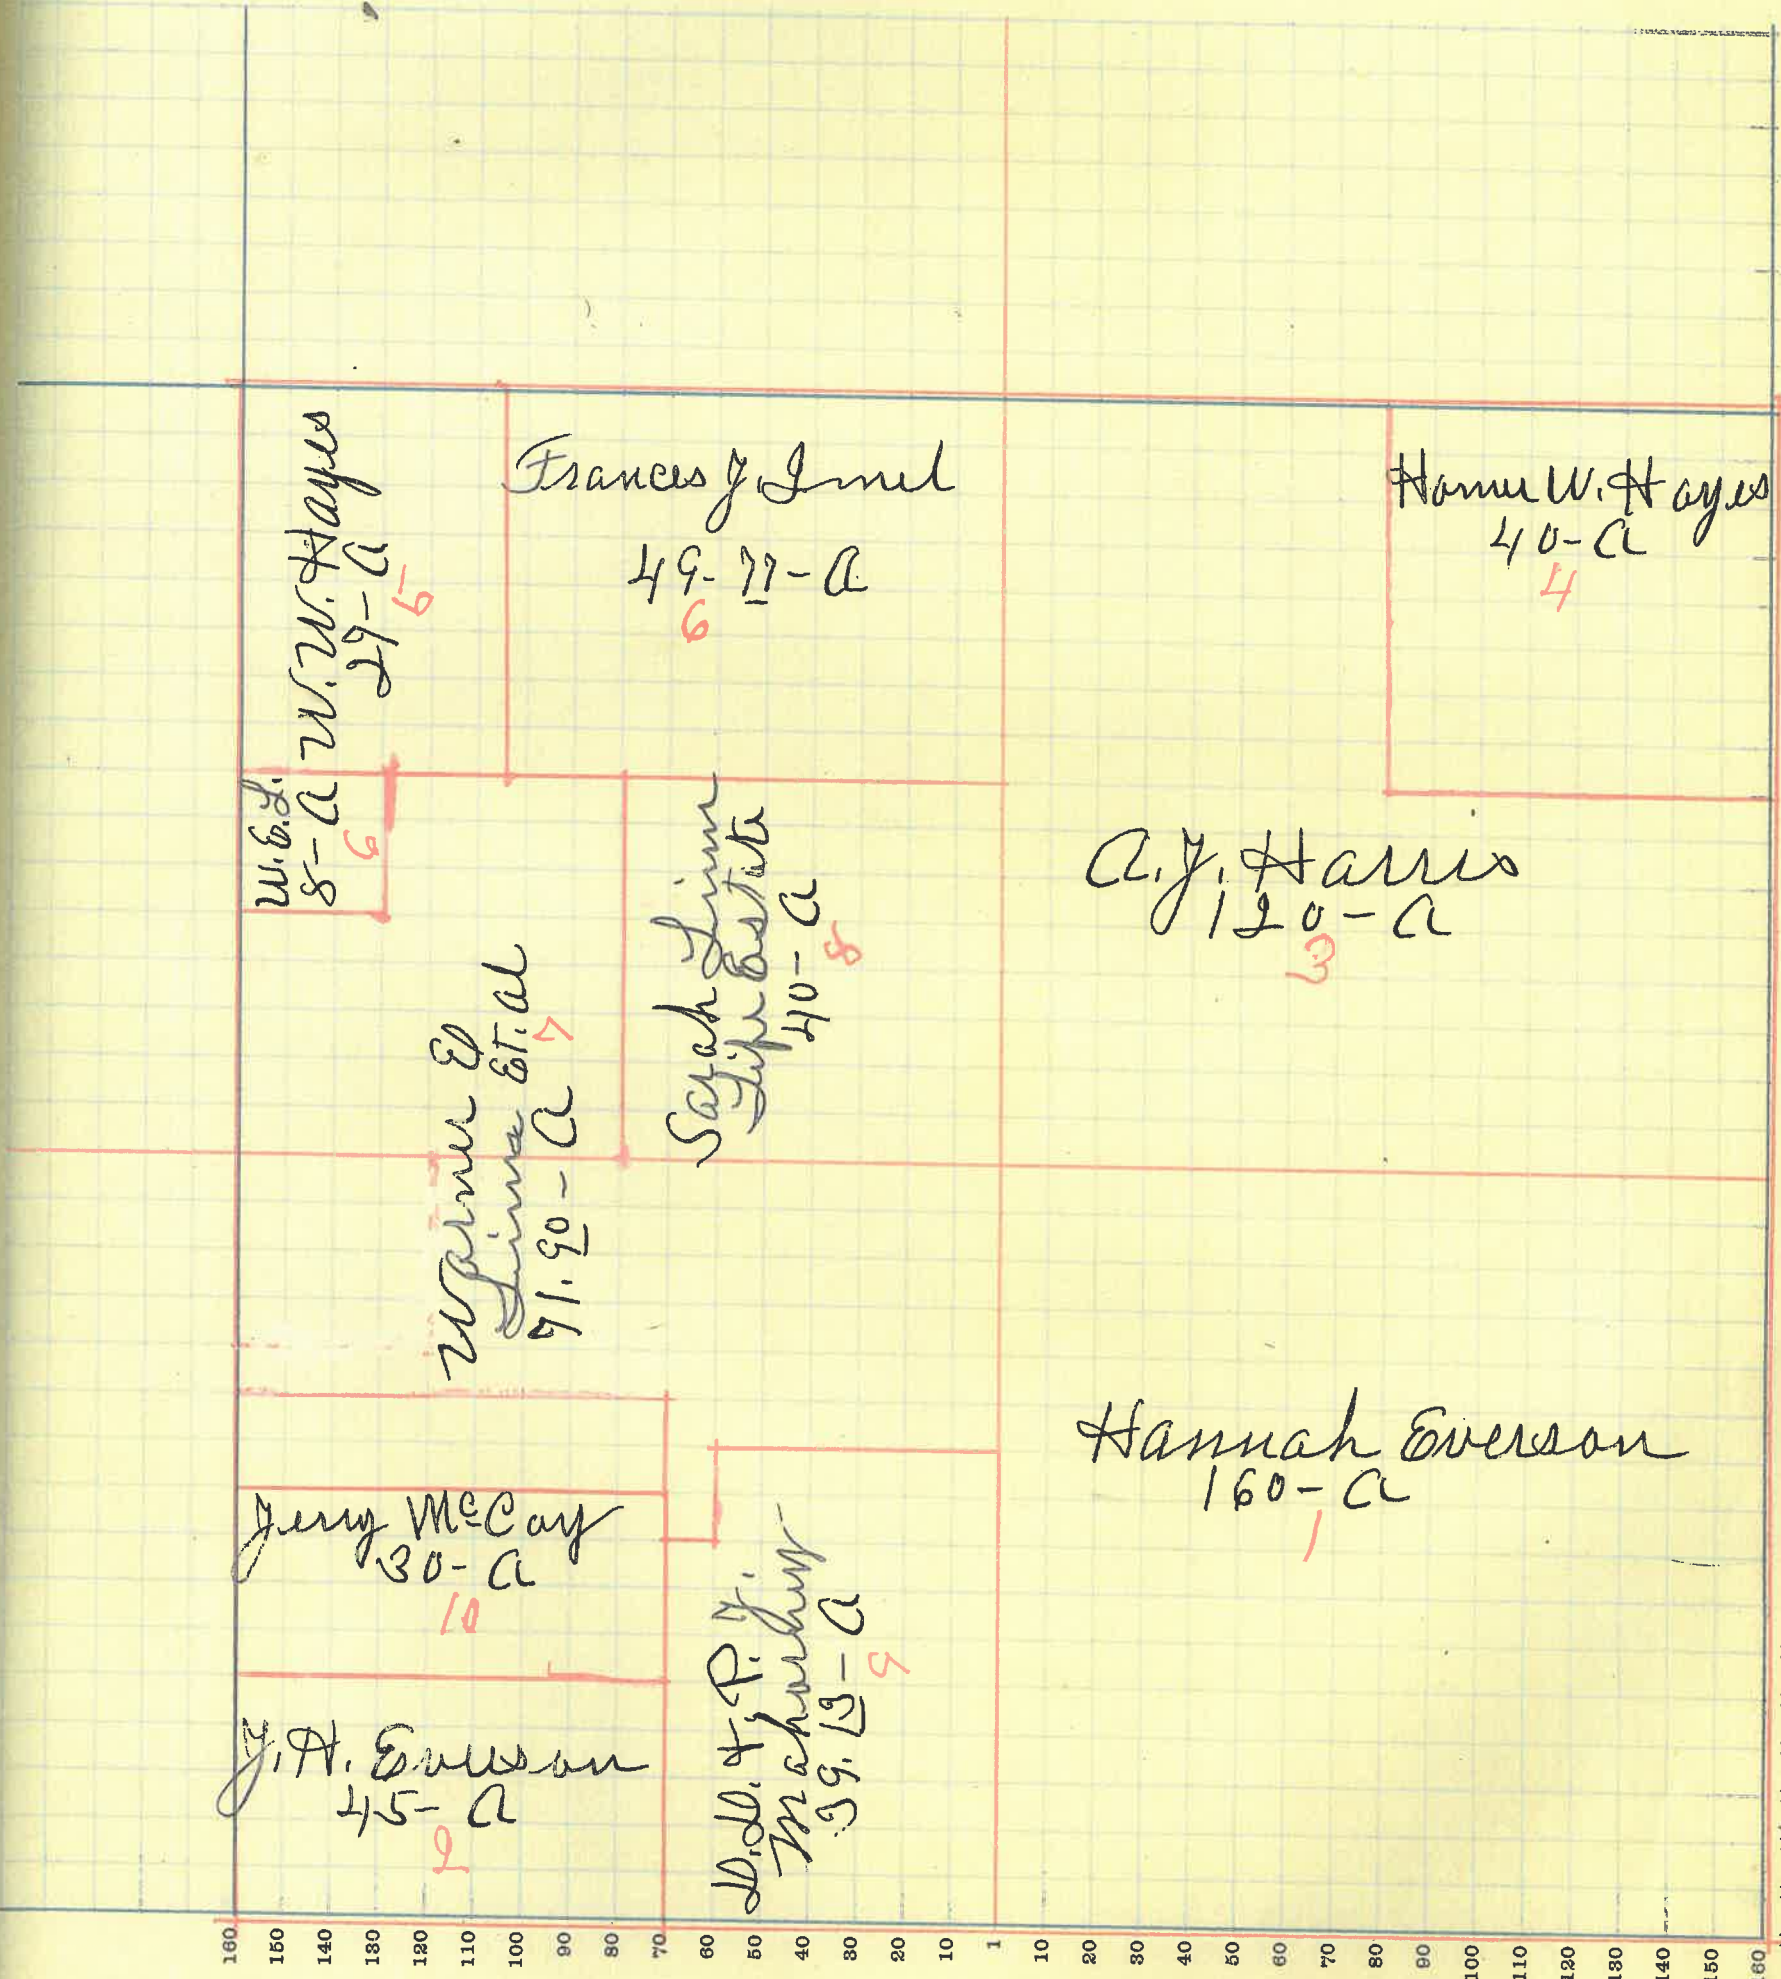 W. W. Hayes
29-A
5
Frances J. Imel
49-77-A
6
Homer W. Hayes
40-A
4
W.E.L.
8-A
Warner E
Linn Et. al
71.90-A
7
Sarah Linn
Life Estate
40-A
8
A. J. Harris
120-A
3
Hannah Everson
160-A
1
Jerry McCoy
30-A
10
J. H. Everson
45-A
2
D.D. & P. J.
39.13-A
9
160
150
140
130
120
110
100
90
80
70
60
50
40
30
20
10
1
10
20
30
40
50
60
70
80
90
100
110
120
130
140
150
160